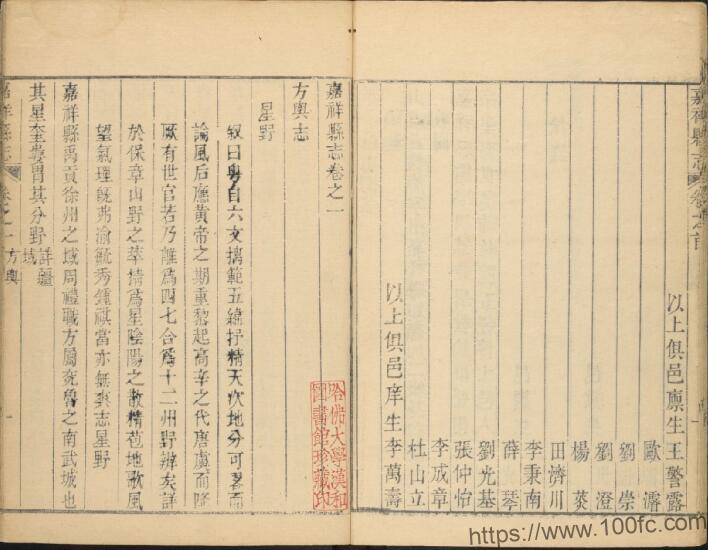 嘉祥縣志 卷之首
以上俱邑廩生王警露
歐濬
劉崇
劉澄
楊
田濟川
李秉南
薛琴
劉光基
張仲怡
李成章
杜山立
以上俱邑庠生李萬壽
嘉祥縣志卷之一
方輿志
星野
叙曰粤自六文摛範五緯抒精天次地分可畧而
論風后應黄帝之期重黎起高辛之代唐虞而降
厥有世官若乃離爲四七合爲十二州野辨矣詳
於保章山野之萃摛爲星陰陽之散精苞地歌風
望氣理旣弗渝毓秀鍾祺當亦無爽志星野
嘉祥縣禹貢徐州之域周禮職方屬兖魯之南武城也
其星奎婁胃其分野詳疆域
嘉祥縣志 卷之一 方輿 一
哈佛大學漢和
圖書館珍藏印
https://www.100fc.com